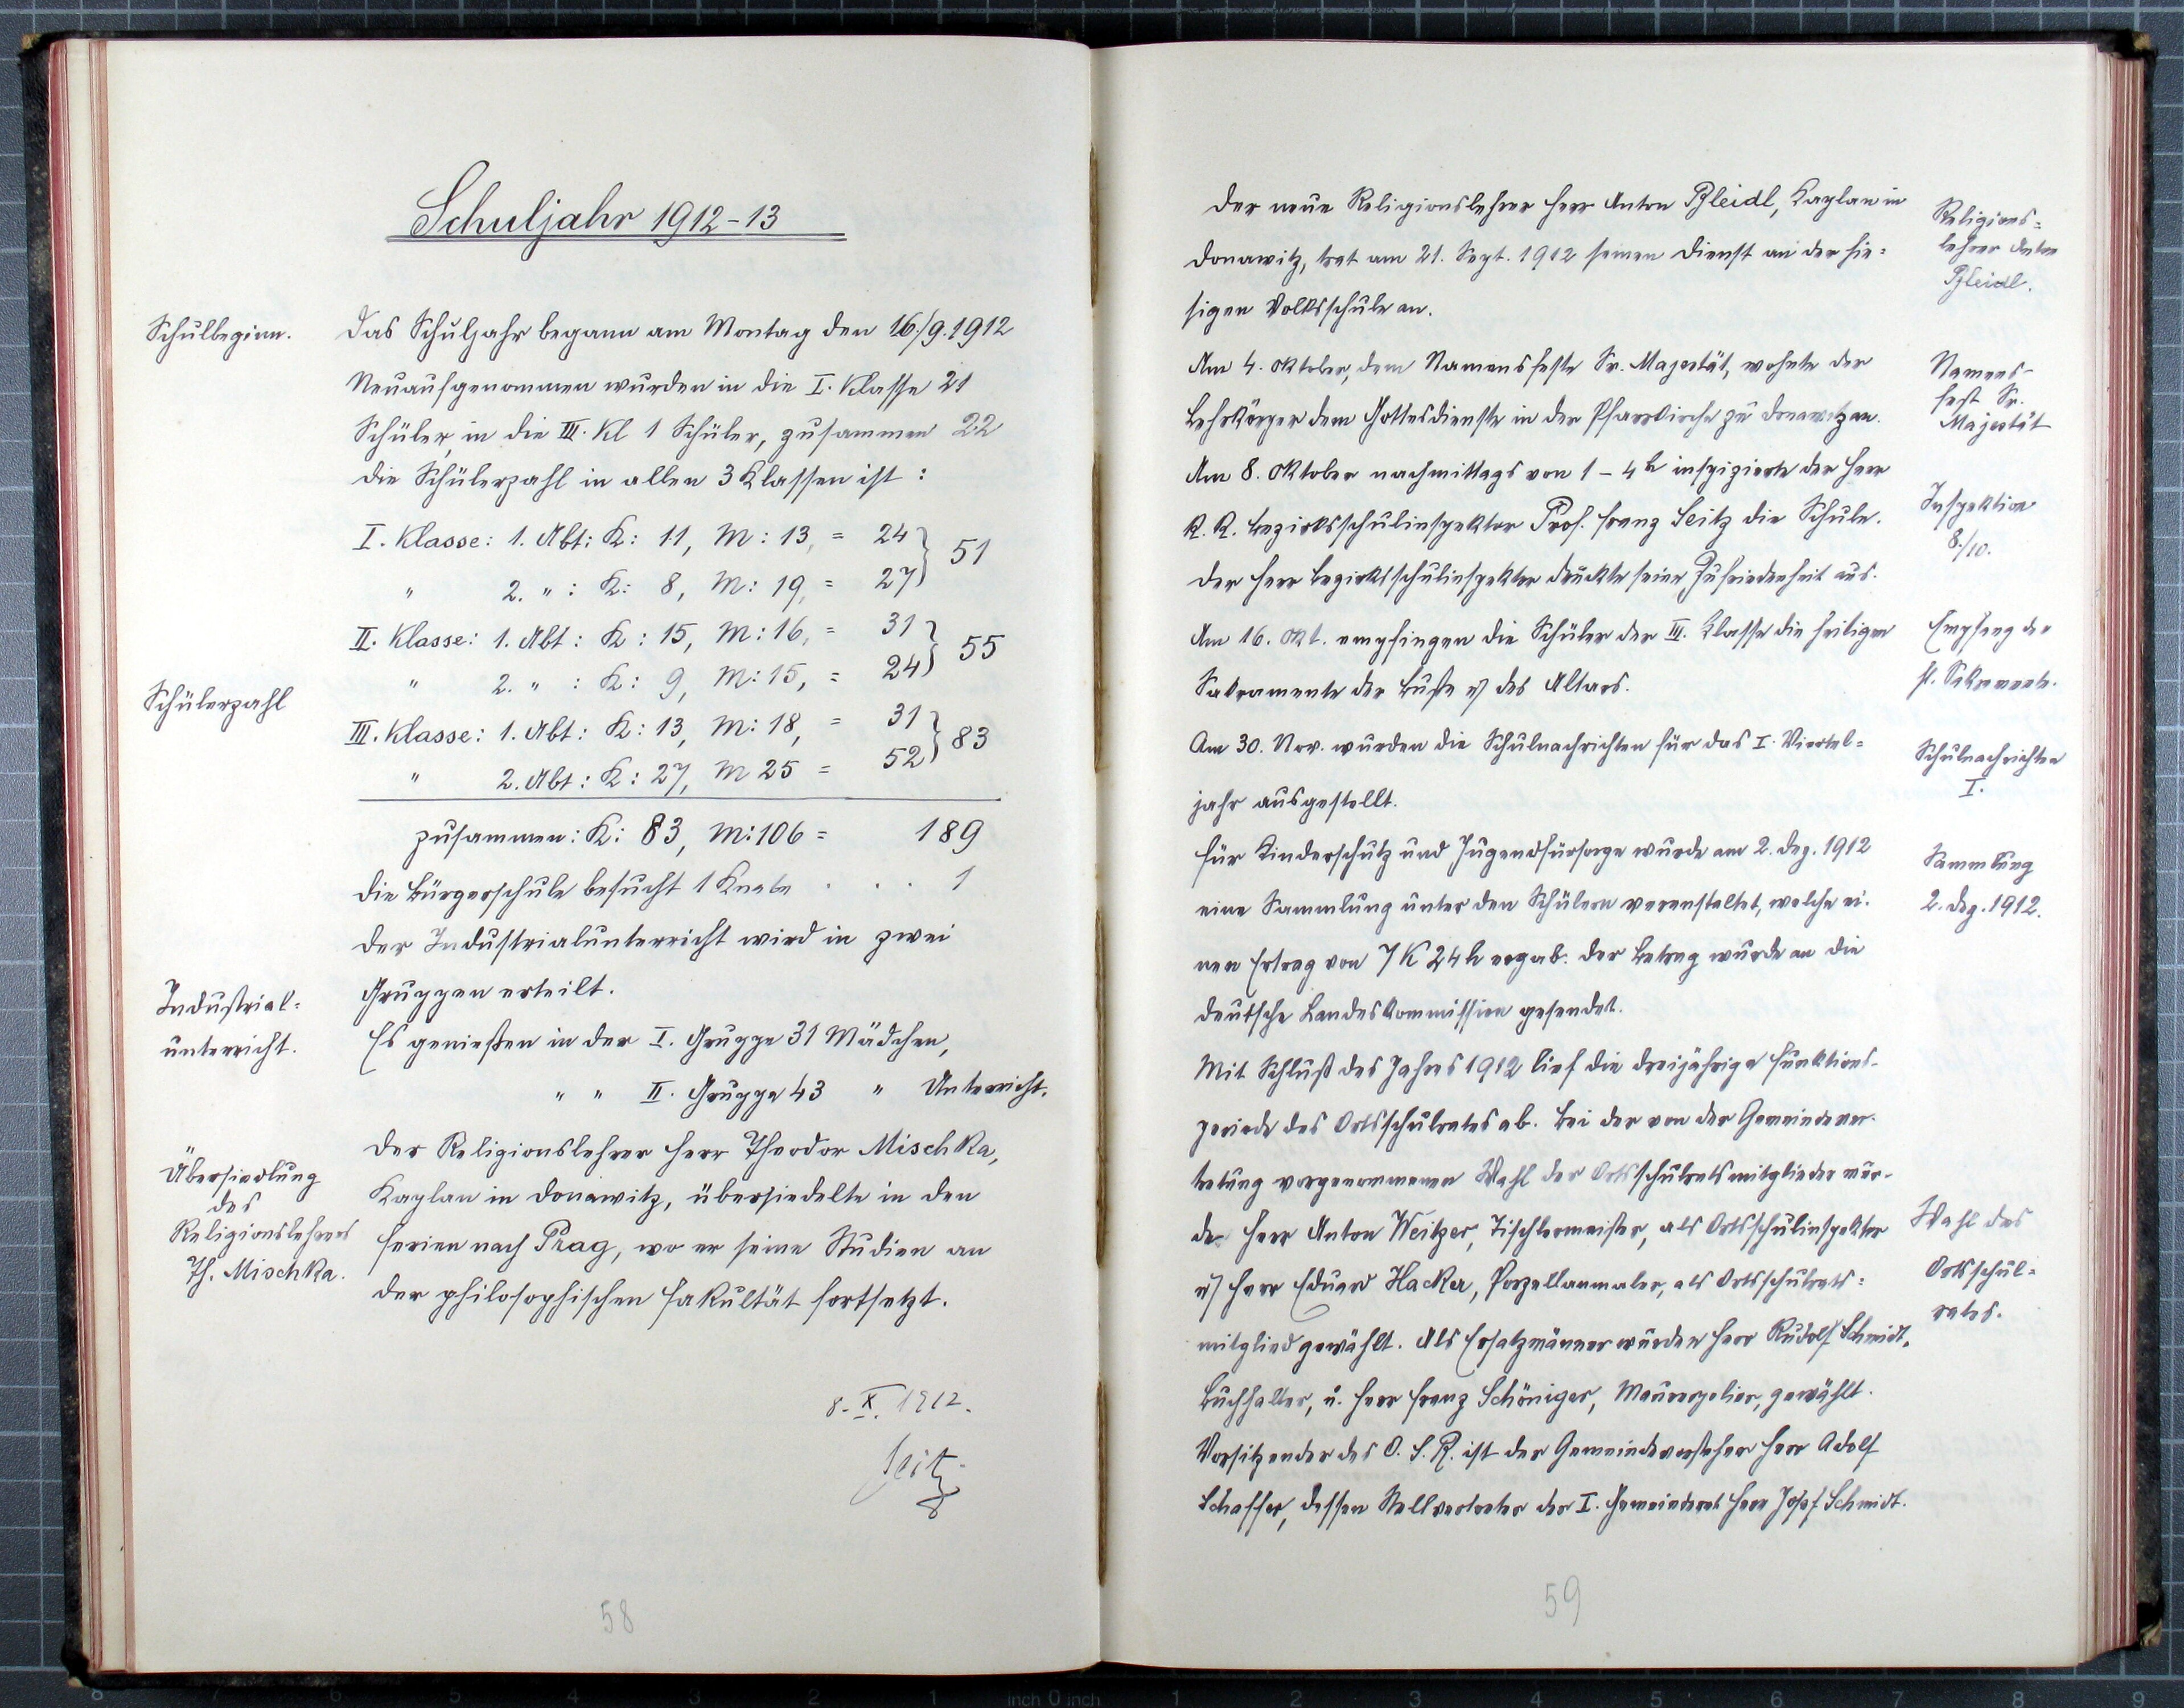 Schuljahr 1912-13
Schulbeginn.
Das Schuljahr begann am Montag den 16./9. 1912
Neuaufgenommen wurden in die I. Klasse 21
Schüler, in die III. Kl 1 Schüler, zusammen 22
Die Schülerzahl in allen 3 Klassen ist :
I. Klasse: 1. Abt: K: 11, M: 13, = 24 } 51
" 2. " : K: 8, M: 19, = 27
II. Klasse: 1. Abt: K: 15, M: 16, = 31 } 55
" 2. " : K: 9, M: 15, = 24
Schülerzahl
III. Klasse: 1. Abt: K: 13, M: 18, = 31 } 83
" 2. Abt: K: 27, M 25 = 52
zusammen: K: 83, M: 106 = 189
Die Bürgerschule besucht 1 Knabe . . . 1
Der Industrialunterricht wird in zwei
Gruppen erteilt.
Industrial=
unterricht.
Es genießen in der I. Gruppe 31 Mädchen,
" " II. Gruppe 43 " Unterricht.
Übersiedlung
des
Religionslehrers
Th. Mischka.
Der Religionslehrer Herr Theodor Mischka,
Kaplan in Donawitz, übersiedelte in den
Ferien nach Prag, wo er seine Studien an
der philosophischen Fakultät fortsetzt.
8. X. 1912.
Seitz
58
Der neue Religionslehrer Herr Anton Pleidl, Kaplan in
Donawitz, trat am 21. Sept. 1912 seinen Dienst an der hie=
sigen Volksschule an.
Religions=
lehrer Anton
Pleidl.
Am 4. Oktober, dem Namensfeste Sr. Majestät, wohnte der
Lehrkörper dem Gottesdienste in der Pfarrkirche zu Donawitz an.
Namens-
fest Sr.
Majestät
Am 8. Oktober nachmittags von 1 - 4 h inspizierte der Herr
K. K. Bezirksschulinspektor Prof. Franz Seitz die Schule.
Der Herr Bezirksschulinspektor drückte seine Zufriedenheit aus.
Inspektion
8./10.
Am 16. Okt. empfingen die Schüler der III. Klasse die heiligen
Sakramente der Buße u. des Altars.
Empfang der
hl. Sakramente.
Am 30. Nov. wurden die Schulnachrichten für das I. Viertel=
jahr ausgestellt.
Schulnachrichten
I.
Für Kinderschutz und Jugendfürsorge wurde am 2. Dez. 1912
eine Sammlung unter den Schülern veranstaltet, welche ei-
nen Ertrag von 7 K 24 h ergab. Der Betrag wurde an die
deutsche Landeskommission gesendet.
Sammlung
2. Dez. 1912.
Mit Schluß des Jahres 1912 lief die dreijährige Funktions-
periode des Ortsschulrates ab. Bei der von der Gemeindever-
tretung vorgenommenen Wahl der Ortsschulratsmitglieder wur-
de Herr Anton Weitzer, Tischlermeister, als Ortsschulinspektor
u. Herr Eduard Hacker, Porzellanmaler, als Ortsschulrats=
mitglied gewählt. Als Ersatzmänner wurden Herr Rudolf Schmidt,
Buchhalter, u. Herr Franz Schöniger, Maurerpolier, gewählt.
Vorsitzender des O. S. R. ist der Gemeindevorsteher Herr Adolf
Schaffer, dessen Stellvertreter der I. Gemeinderat Herr Josef Schmidt.
Wahl des
Ortsschul=
rates.
59
8 7 6 5 4 3 2 1 inch 0 inch 1 2 3 4 5 6 7 8 9